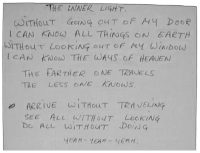 THE INNER LIGHT.
WITHOUT GOING OUT OF MY DOOR
I CAN KNOW ALL THINGS ON EARTH
WITHOUT LOOKING OUT OF MY WINDOW
I CAN KNOW THE WAYS OF HEAVEN
THE FARTHER ONE TRAVELS
THE LESS ONE KNOWS
ARRIVE WITHOUT TRAVELING
SEE ALL WITHOUT LOOKING
DO ALL WITHOUT DOING
YEAH-YEAH-YEAH.